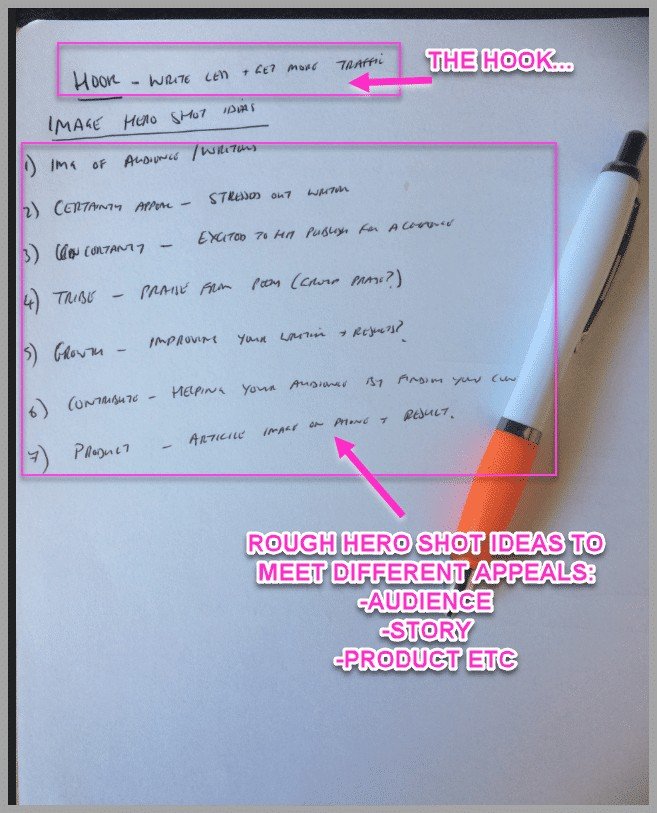 HOOK - WRITE LESS + GET MORE TRAFFIC
THE HOOK...
IMAGE HERO SHOT IDEAS
1) IMG OF AUDIENCE / WRITERS
2) CERTAINTY APPEAL - STRESSED OUT WRITER
3) - EXCITED TO HIT PUBLISH FOR A
4) TRIBE - PRAISE FROM (
5) GROWTH - IMPROVING YOUR WRITING + RESULTS?
6) CONTRIBUTE - HELPING YOUR AUDIENCE BY FINDING YOUR
7) PRODUCT - ARTICILE IMAGE ON PHONE + RESULT.
ROUGH HERO SHOT IDEAS TO
MEET DIFFERENT APPEALS:
-AUDIENCE
-STORY
-PRODUCT ETC